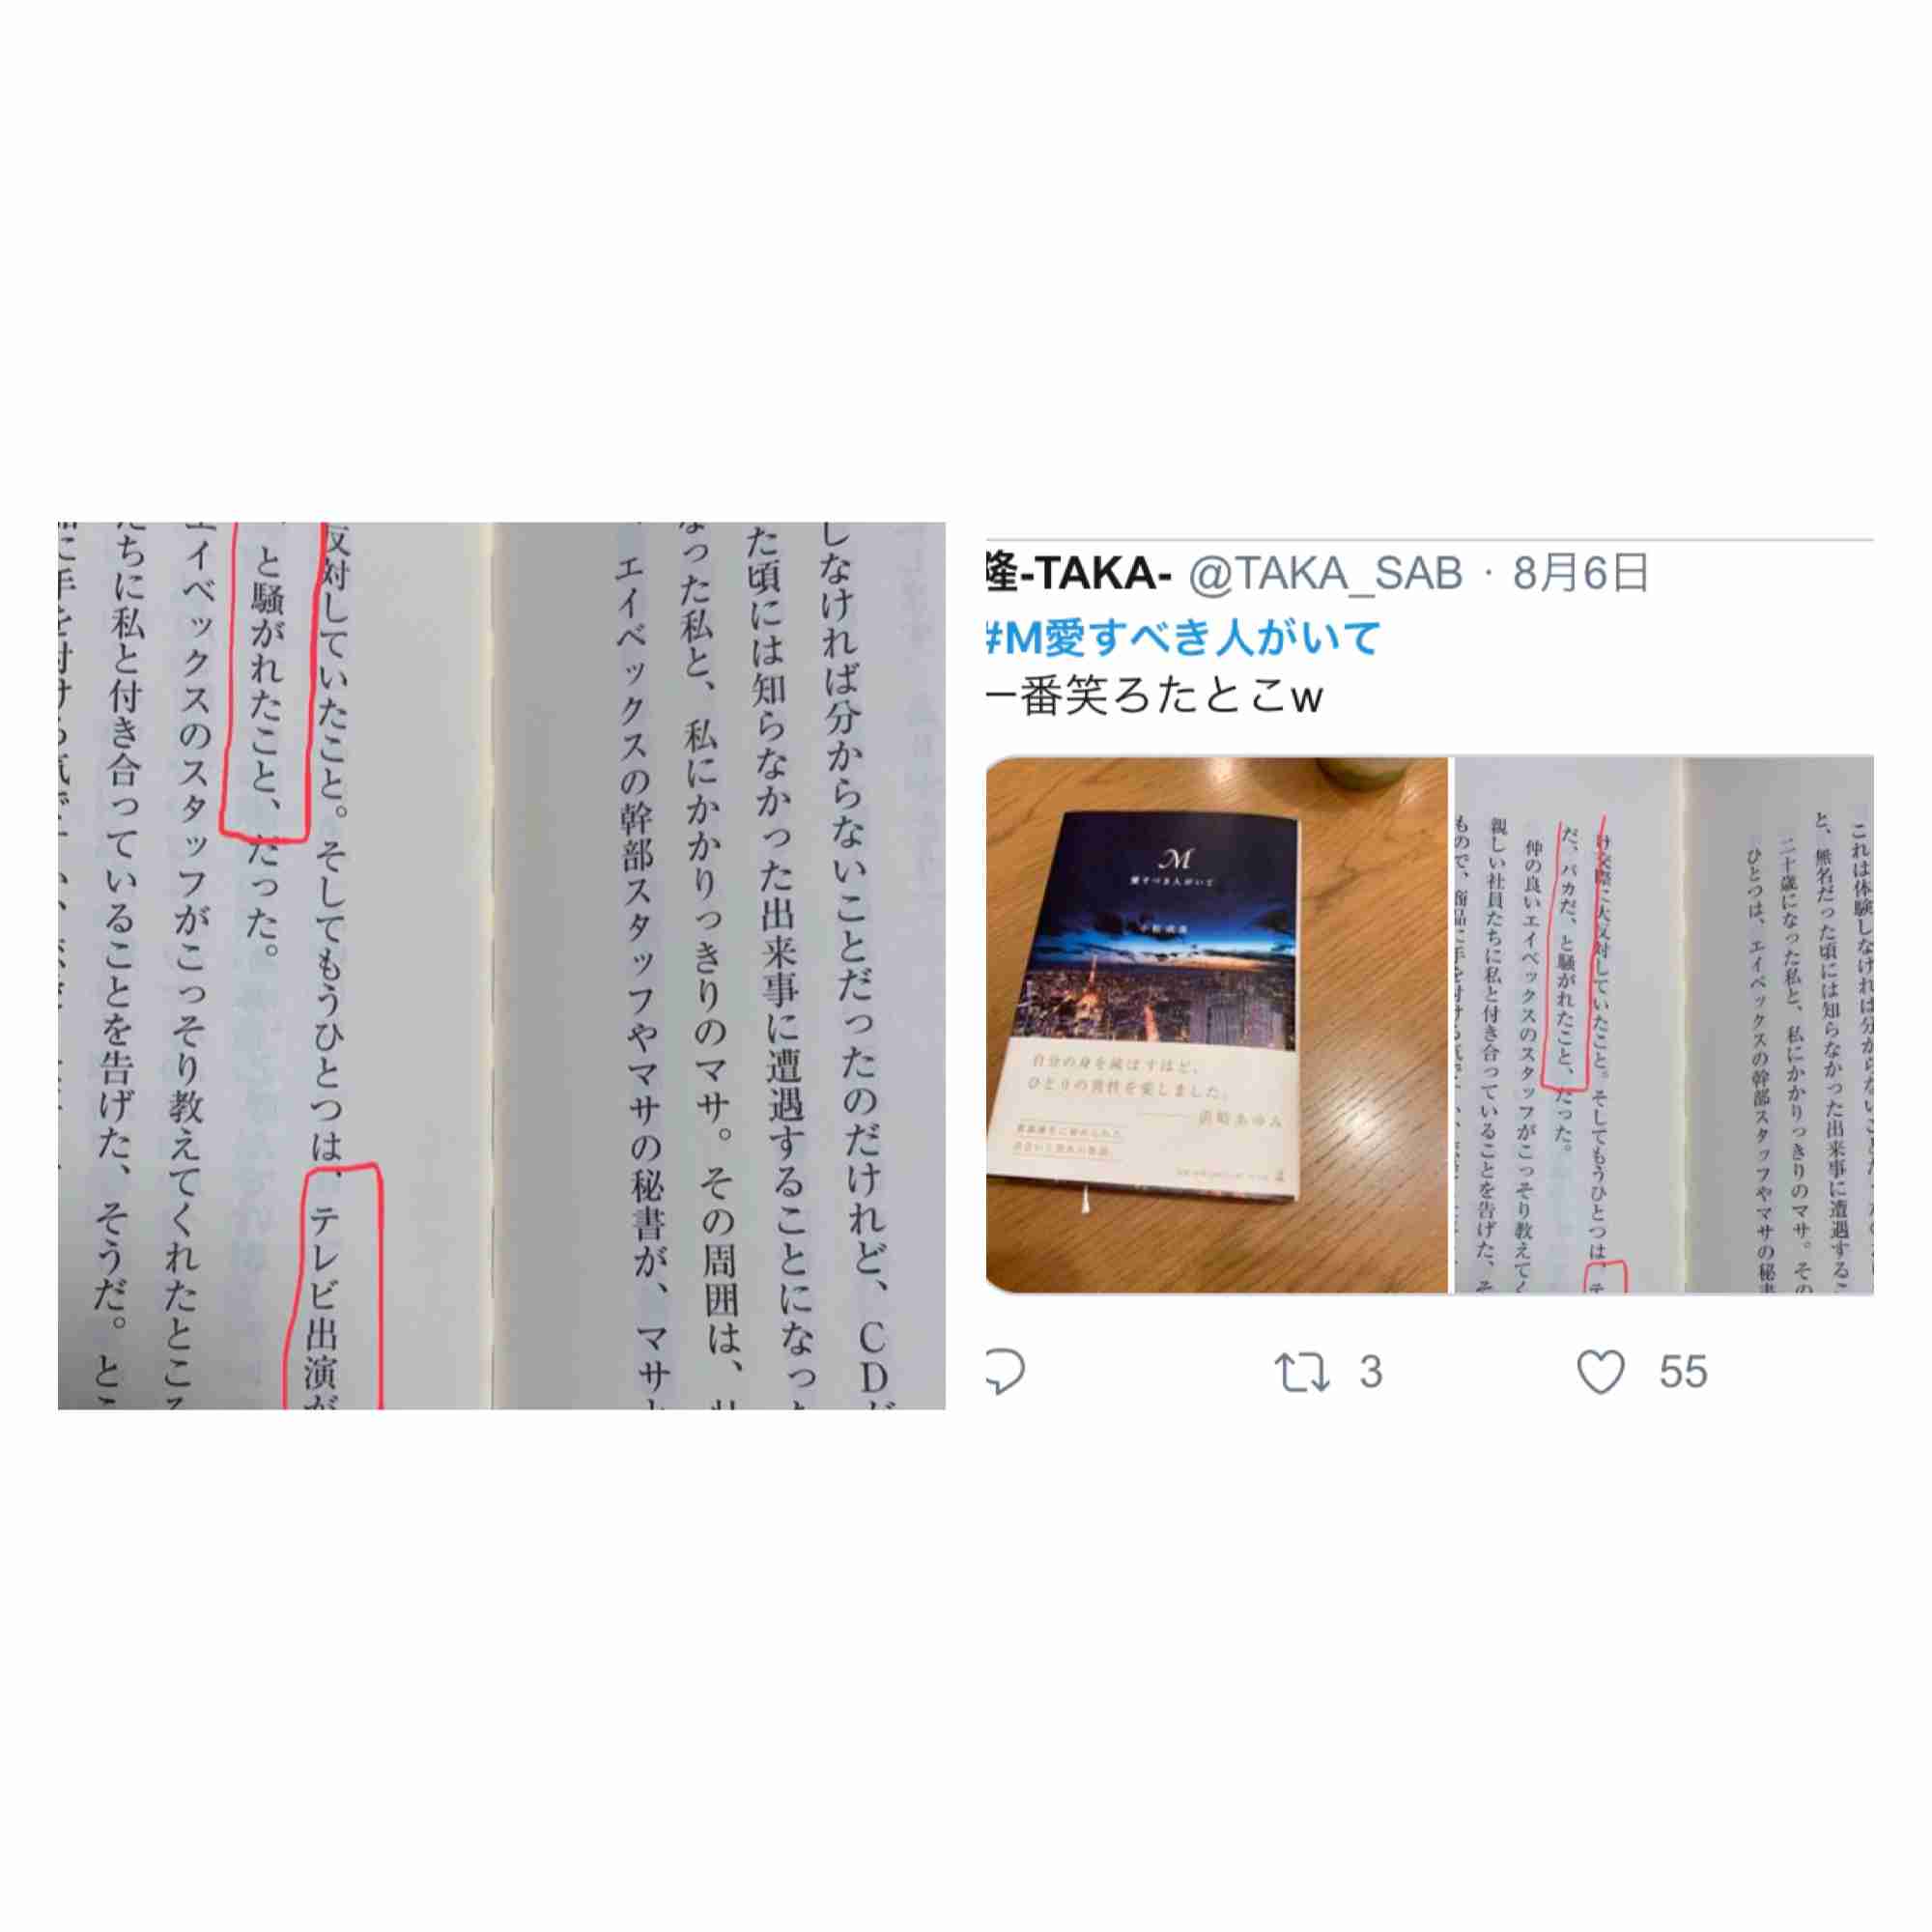 しなければ分からないことだったのだけれど、CDが
た頃には知らなかった出来事に遭遇することになっ
なった私と、私にかかりっきりのマサ。その周囲は、
エイベックスの幹部スタッフやマサの秘書が、マサ
反対していたこと。そしてもうひとつは、テレビ出演が
と騒がれたこと、だった。
エイベックスのスタッフがこっそり教えてくれたところ
たちに私と付き合っていることを告げた、そうだ。とこ
隆-TAKA- @TAKA_SAB · 8月6日
#M愛すべき人がいて
一番笑ろたとこw
M
愛すべき人がいて
小松成美
自分の身を滅ぼすほど、
ひとりの男性を愛しました。
浜崎あゆみ
これは体験しなければ分からないことだった
と、無名だった頃には知らなかった出来事に遭遇するこ
二十歳になった私と、私にかかりっきりのマサ。その
ひとつは、エイベックスの幹部スタッフやマサの秘書
け交際に大反対していたこと。そしてもうひとつは、テ
だ、バカだ、と騒がれたこと、だった。
仲の良いエイベックスのスタッフがこっそり教えてく
親しい社員たちに私と付き合っていることを告げた、そ
もので、商品に手を付ける
3
55